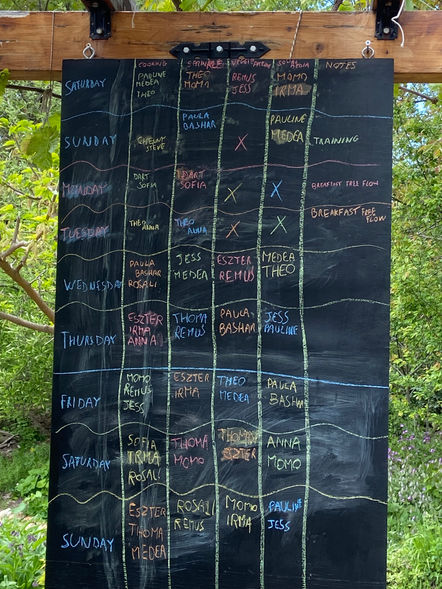 COOKING NOTES
SATURDAY PAULINE THEO REMUS MOMO
MEDEA MOMA JESS IRMA
THEO
SUNDAY PAULA PAULINE
BASHAR MEDEA
STEVE X TRAINING
MONDAY DART DART X X BREAKFAST FREE FLOW
SOFIA SOFIA
TUESDAY THEO ANNA THEO X X BREAKFAST FREE
ANNA FLOW
WEDNESDAY PAULA JESS ESZTER MEDEA
BASHAR MEDEA REMUS THEO
ROSALI
THURSDAY ESZTER THOMA PAULA JESS
IRMA REMUS BASHAR PAULINE
ANNA
FRIDAY MOMO ESZTER THEO PAULA
REMUS IRMA MEDEA BASHAR
JESS
SATURDAY SOFIA THOMA ANNA
IRMA MOMO ESZTER MOMO
ROSALI
SUNDAY ESZTER ROSALI MOMO PAULINE
THOMA REMUS IRMA JESS
MEDEA